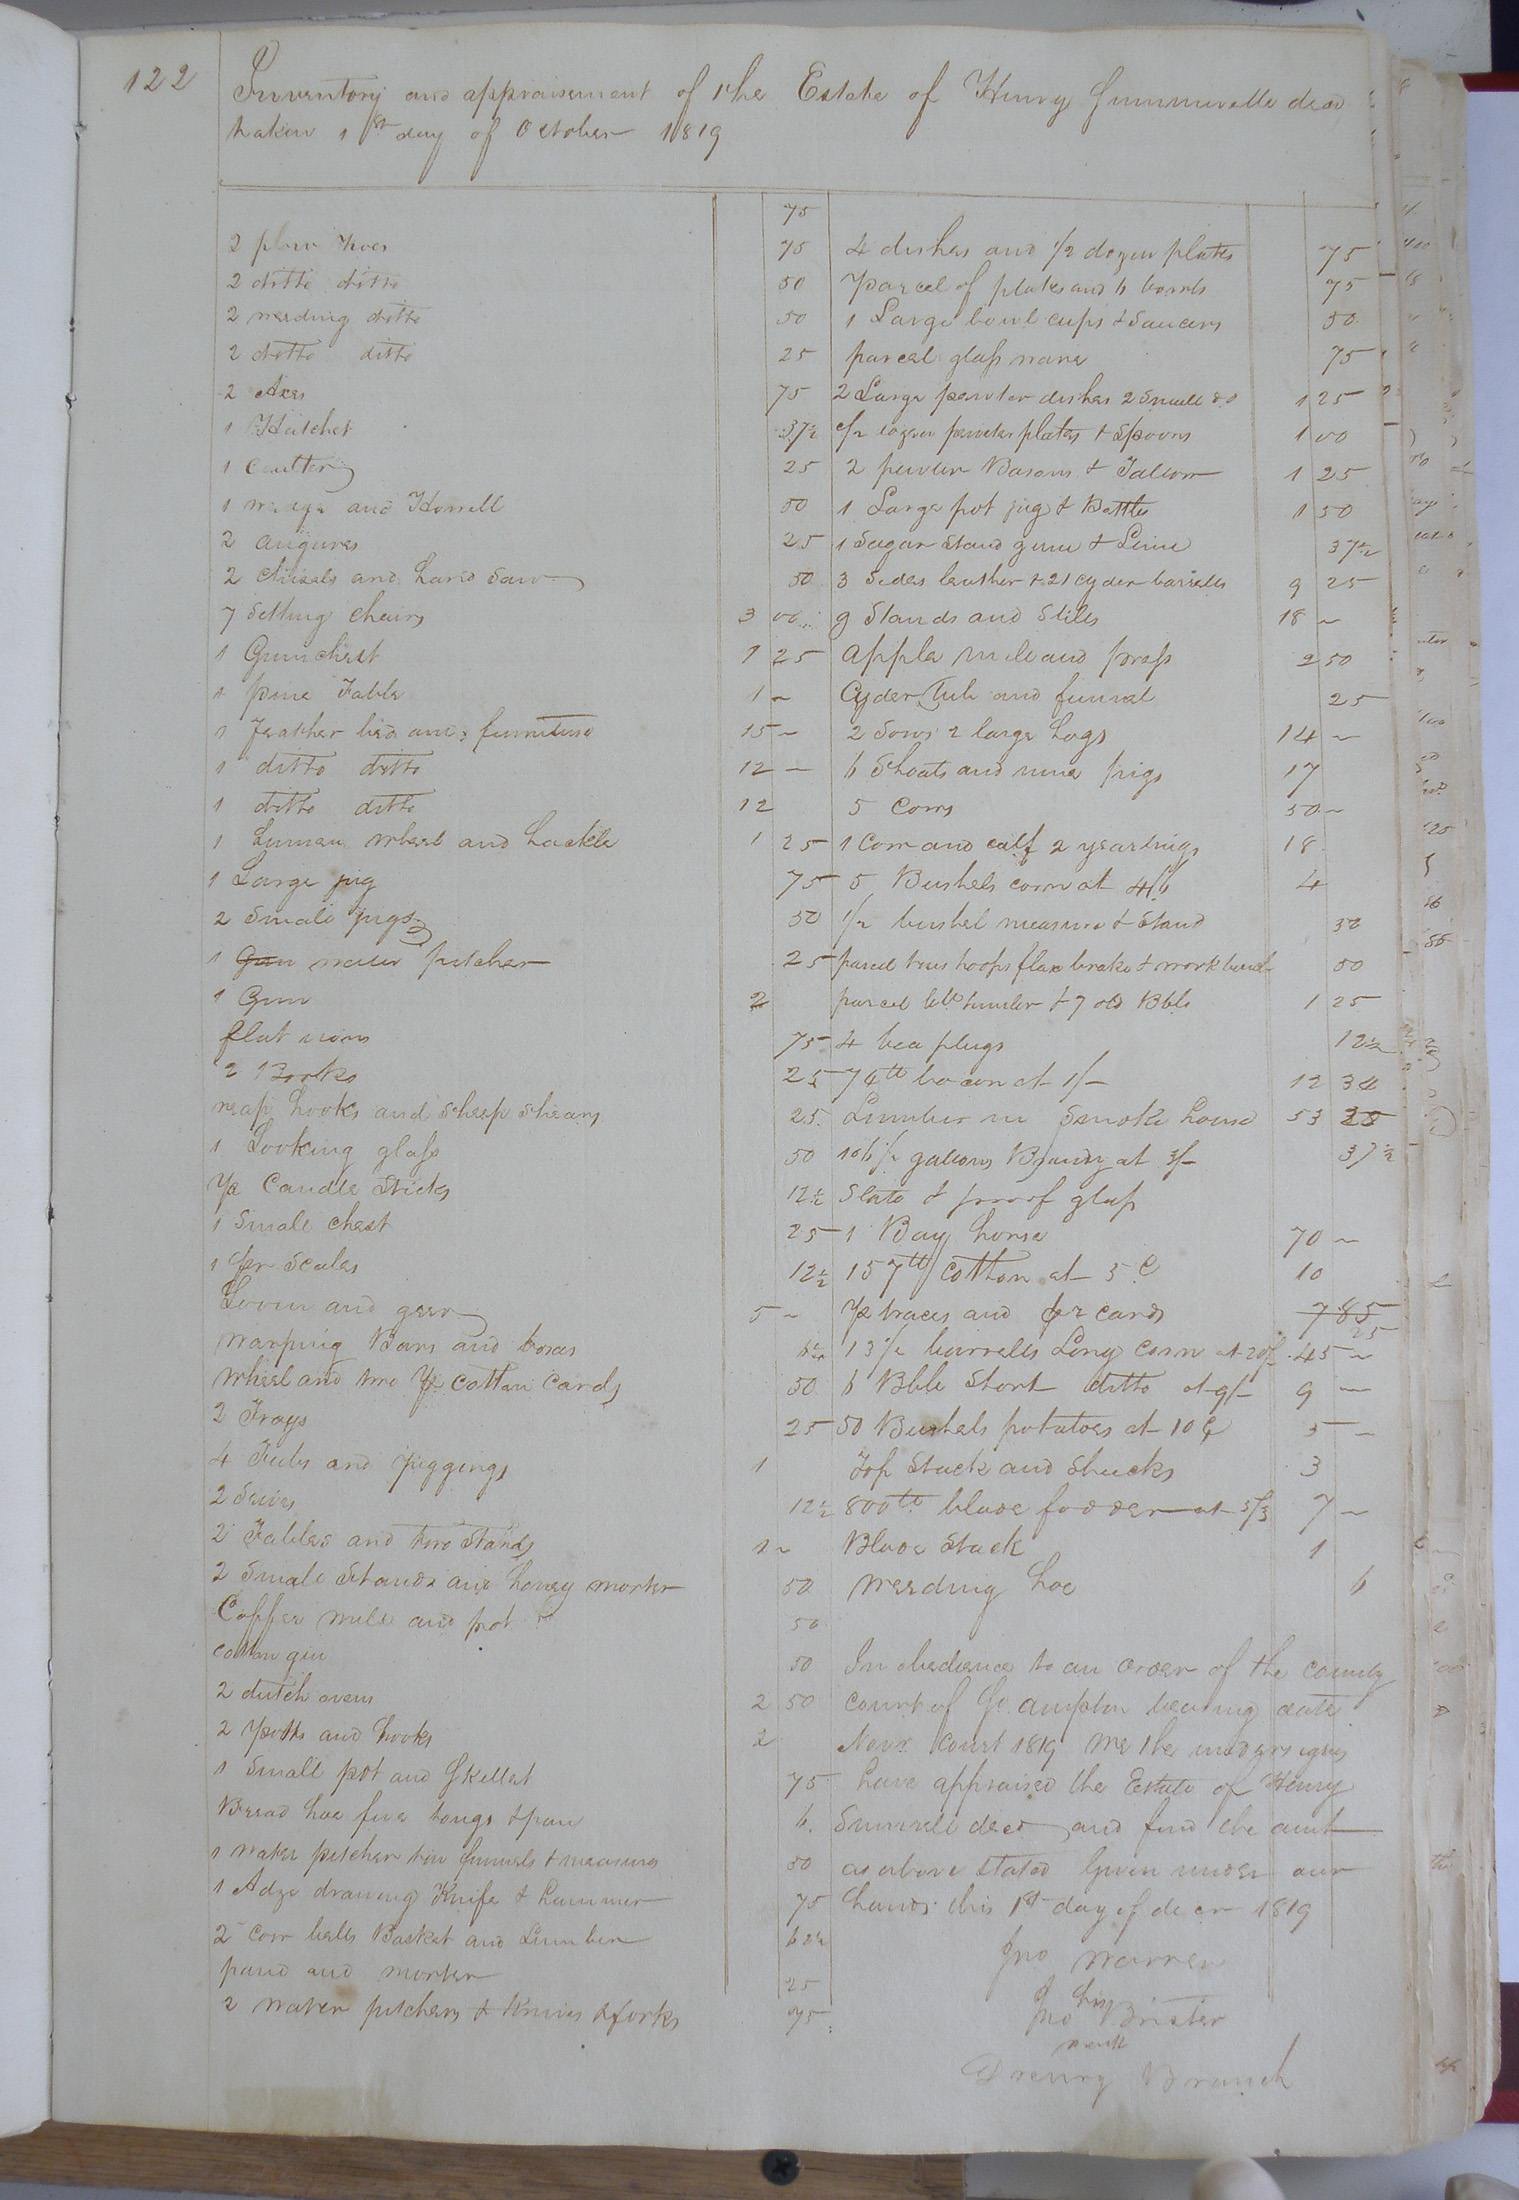 122
Inventory and appraisement of the Estate of Henry Summerelle decd
taken 1st day of October 1819
75
2 plow hoes 75
2 ditto ditto 50
2 weeding ditto 50
2 ditto ditto 25
2 Axes 75
1 Hatchet 37½
1 Coulter 25
1 wedge and Howell 50
2 augures 25
2 Chisels and hand Saw 50
7 Setting Chairs 3 00
1 Gum chest 1 25
1 pine Table 1 ~
1 Feather bed and furniture 15 –
1 ditto ditto 12 –
1 ditto ditto 12
1 Linnen wheel and hackle 1 25
1 Large jug 75
2 Small jugs 50
1 Gun water pitcher 25
1 Gun 2
flat irons 75
2 Books 25
reap hooks and Sheep Shears 25
1 Looking glass 50
pr Candle Sticks 12½
1 Small Chest 25
1 pr Scales 12½
Loom and gear 5 ~
warping Bars and boxes 6¼
wheel and two pr cotton Cards 50
2 Trays 25
4 Tubs and piggings 1
2 Seives 12½
2 Tables and two Stands 1 ~
2 Small Stands and honey morter 50
Coffee mill and pot 50
cotton gin 50
2 dutch ovens 2 50
2 potts and hooks 2
1 Small pot and Skellet 75
Bread hoe fire tongs & pan 6
1 water pitcher tin funnels & measures 50
1 Adze drawing Knife & hammer 75
2 Cow bells Basket and Lumber 62½
pand and morter 25
2 water pitchers & Knives & forks 75
4 dishes and 1/2 dozen plates 75
parcel of plates and 6 bowls 75
1 Large bowl cups & Saucers 50
parcel glass ware 75
2 Large pewter dishes 2 Small do 1 25
1/2 dozen pewter plates & Spoons 1 00
2 pewter Basons & Tallow 1 25
1 Large pot jug & Bottle 1 50
1 Sugar Stand gum & Lime 37½
3 Sides leather & 21 Cyder barrells 9 25
9 Stands and Stills 18 ~
apple mill and press 2 50
Cyder Tub and funnel 25
2 Sows 2 large hogs 14 ~
6 Shoats and nine pigs 17
5 Cows 50 ~
1 Cow and calf 2 yearlings 18
5 Bushels corn at 4/6 4
1/2 bushel measure & Stand 30
parcel truss hoops flax brake & work bench 50
parcel lumber & 7 old Bbls 1 25
4 bea plugs 12½
74lb bacon at 1/– 12 34
Lumber in Smoke house 53 25
106½ gallons Brandy at 3/– 37½
Slate & proof glass
1 Bay horse 70 ~
157lb cotton at 5 C 10
pr traces and pr cards 7 85
25
13½ barrells Long Corn at 20/– 45 ~
6 Bbls Short ditto at 9/– 9 –
50 Bushels potatoes at 10 C 5 –
Top Stack and Shucks 3
800lb blade fodder at 5/3 7 –
Blade Stack 1
weeding hoe 6
In obedience to an order of the county
court of So. ampton bearing date
Novr Court 1819 we the undersigned
have appraised the Estate of Henry
Sumrell decd and find the amt
as above Stated Given under our
hands this 1st day of decr 1819
Jno Warren
his
Jno Brister
mark
Drewry Branch